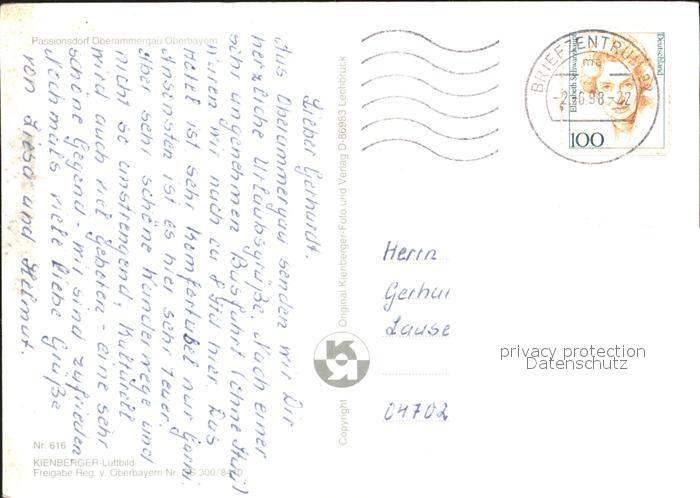 Passionsdorf Oberammergau Oberbayern
Lieber Gerhardt.
Aus Oberammergau senden wir Dir
herzliche Urlaubsgrüße. Nach einer
sehr angenehmen Busfahrt (ohne Stau!)
waren wir nach ca 8 Std hier. Das
Hotel ist sehr komfortabel nur Garni.
Ansonsten ist es hier sehr teuer.
Aber sehr schöne Wanderwege und
nicht so anstrengend, kulturell
wird auch viel geboten - eine sehr
schöne Gegend - wir sind zufrieden
Nochmals viele liebe Grüße
von Liesa und Helmut.
Nr. 616
KIENBERGER-Luftbild
Freigabe Reg. v. Oberbayern Nr. GS 300/
Copyright
Original Kienberger-Foto und Verlag D-86983 Lechbruck
BRIEFZENTRUM
-2.6.98-22
Elisabeth Schwarzhaupt
Deutschland
100
Herrn
Gerhar
Lause
04702
privacy protection
Datenschutz